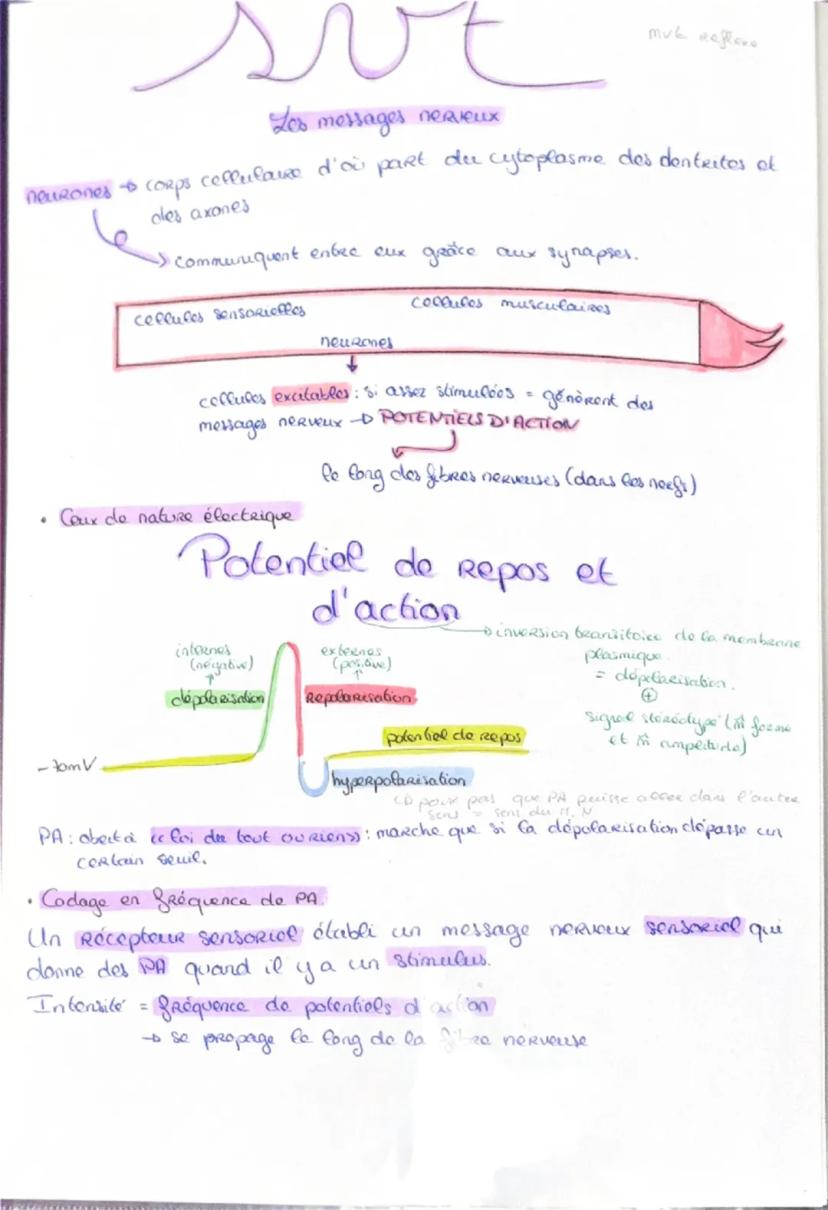 svt
mvt reflexe
Les messages nerveux
neurones → corps cellulaire d'où part du cytoplasme des dentrites et
des axones
→ communiquent entre eux grâce aux synapses.
cellules sensorielles
cellules musculaires
neurones
cellules excitables : si assez stimulées = génèrent des
messages nerveux → POTENTIELS D'ACTION
le long des fibres nerveuses (dans les nerfs)
• Ceux de nature électrique
Potentiel de repos et
d'action
→ inversion transitoire de la membrane
plasmique
= dépolarisation.
⊕
signal stéréotypé (m̂ forme
et m̂ amplitude)
internes
(négative)
externes
(positive)
dépolarisation
Repolarisation
potentiel de repos
-70mV
hyperpolarisation
↳ pour pas que PA puisse aller dans l'autre
sens = sens du M.N
PA : obeit à « loi du tout ou rien » : marche que si la dépolarisation dépasse un
certain seuil.
• Codage en fréquence de PA
Un récepteur sensoriel établi un message nerveux sensoriel qui
donne des PA quand il y a un stimulus.
Intensité = fréquence de potentiels d'action
→ se propage le long de la fibre nerveuse